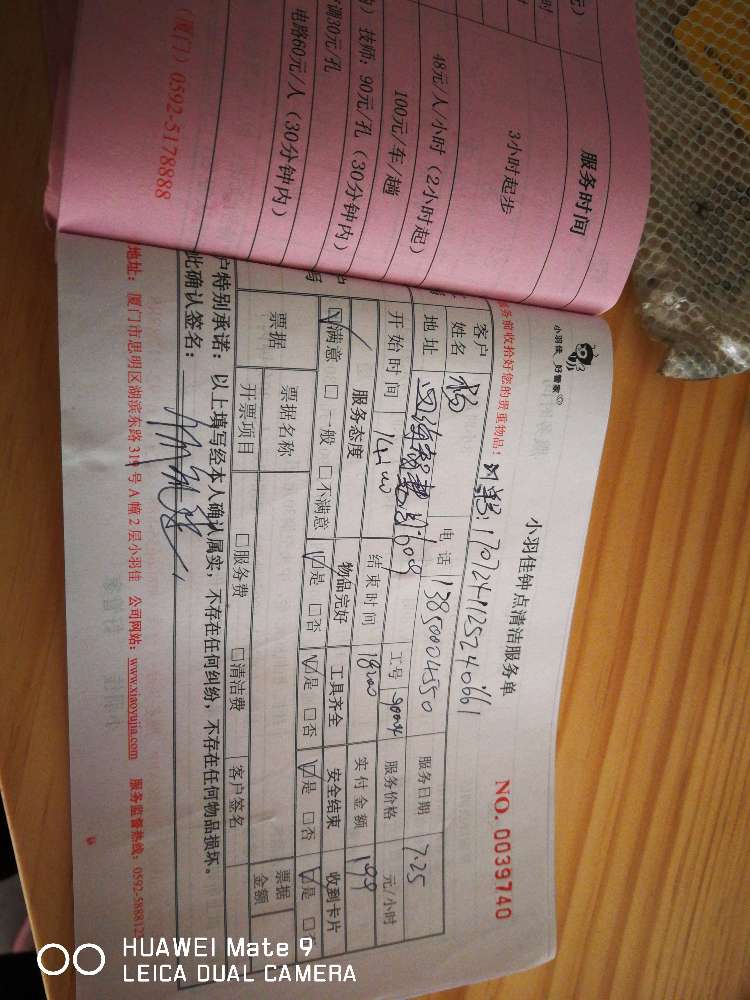 元）
服务时间
3小时起步
48元/人/小时（2小时起）
100元/车/趟
）技师：90元/孔（30分钟内）
调30元/孔
电路60元/人（30分钟内）
（厦门）0592-5178888
小羽佳 好管家
小羽佳钟点清洁服务单
NO. 0039740
务前收拾好您的贵重物品！
客户姓名 杨 电话 13850004550 服务日期 7.25
地址 609 工号 服务价格 元/小时
开始时间 14:00 结束时间 18:00 实付金额 199
服务态度 物品完好 工具齐全 安全结束 收到卡片
☑满意 □一般 □不满意 ☑是 □否 ☑是 □否 ☑是 □否 ☑是
票据 票据名称 票据金额
开票项目 □服务费 □清洁费 客户签名
户特别承诺：以上填写经本人确认属实，不存在任何纠纷，不存在任何物品损坏。
此确认签名：
地址：厦门市思明区湖滨东路319号A幢2层小羽佳 公司网站：www.xiaoyujia.com 服务监督热线：0592-588812
HUAWEI Mate 9
LEICA DUAL CAMERA